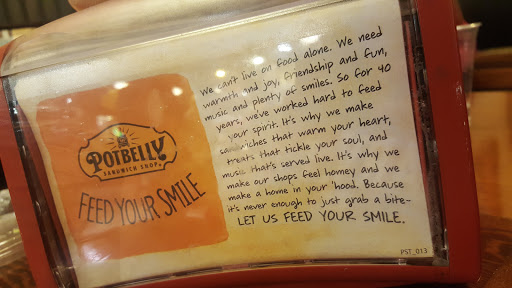 POTBELLY
SANDWICH SHOP
FEED YOUR SMILE
We can't live on food alone. We need
warmth and joy, friendship and fun,
music and plenty of smiles. So for 40
years, we've worked hard to feed
your spirit. It's why we make
sandwiches that warm your heart,
treats that tickle your soul, and
music that's served live. It's why we
make our shops feel homey and we
make a home in your 'hood. Because
it's never enough to just grab a bite-
LET US FEED YOUR SMILE.
PST_013